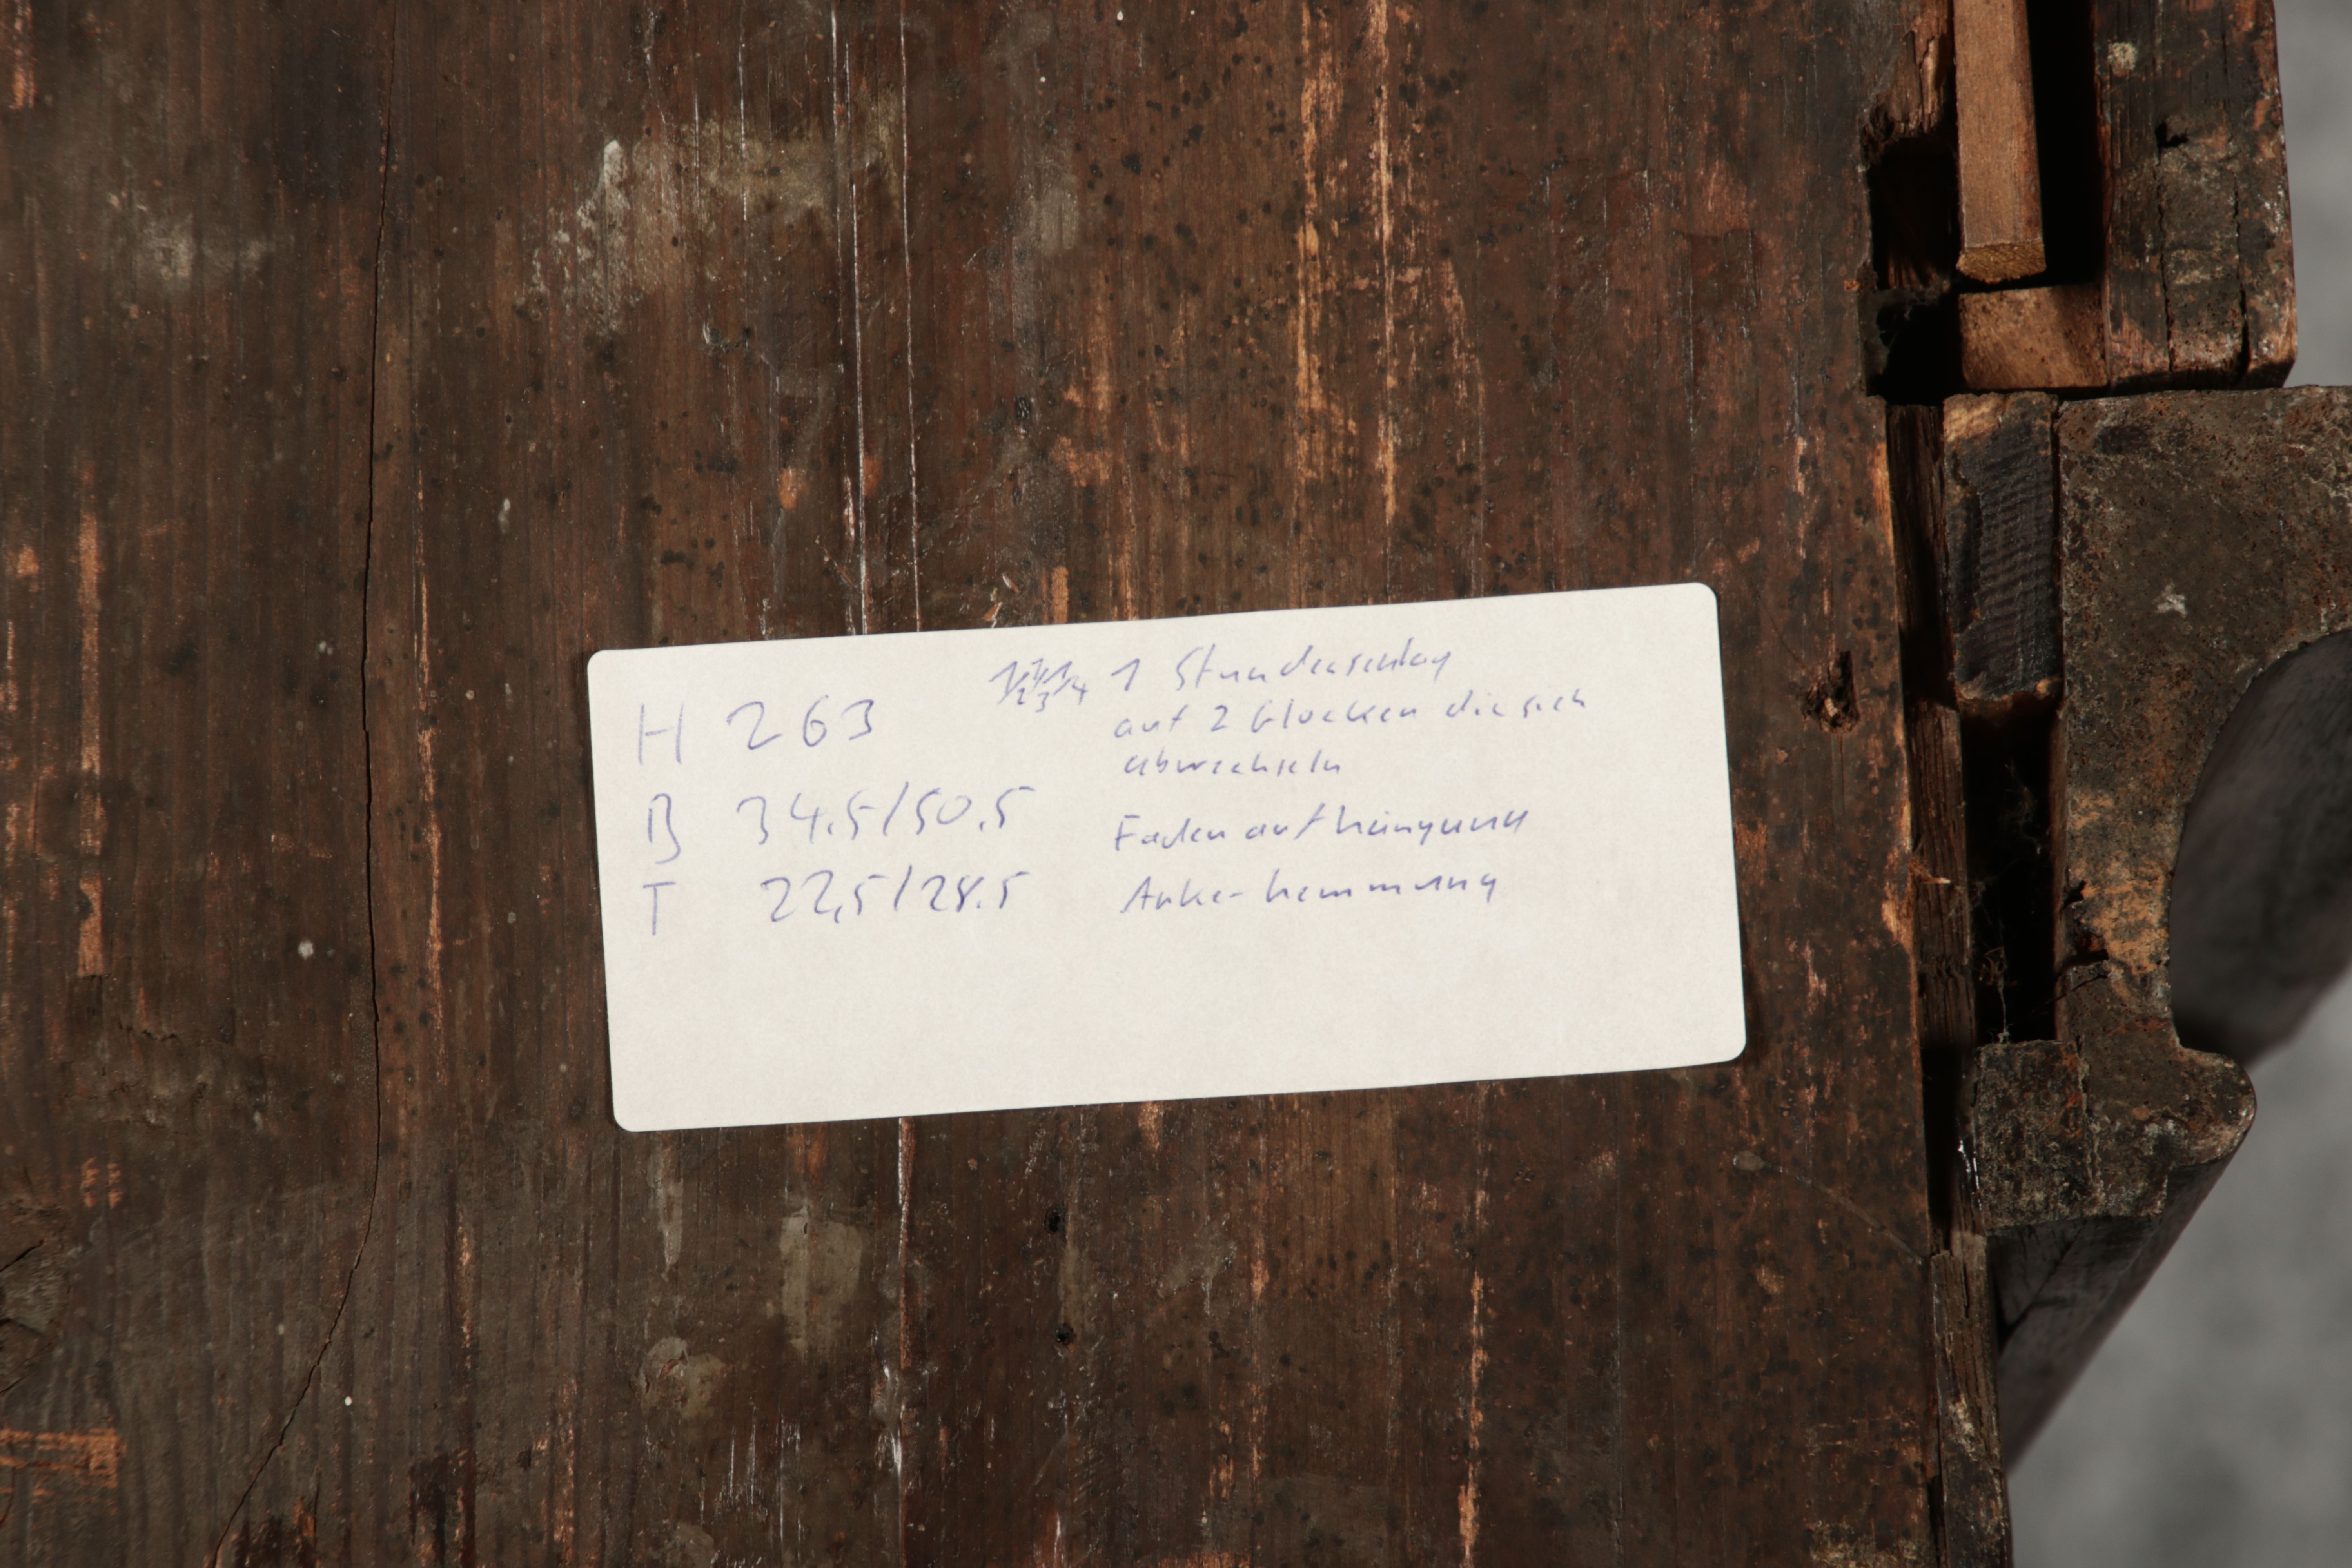 H 263
B 34.5/50.5
T 22,5/28.5
1 Stundenschlag
auf 2 Glocken die sich
abwechseln
Fadenaufhängung
Ankerhemmung